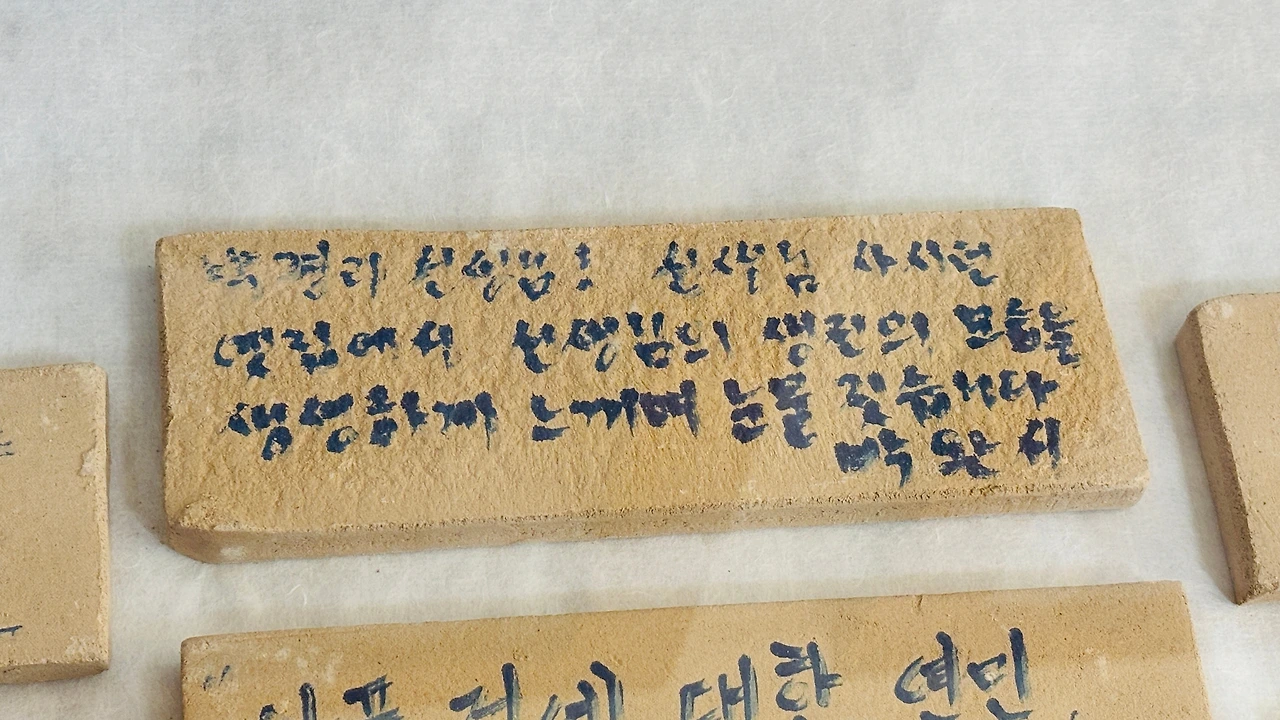 박경리 선생님! 선생님 사시던
옛집에서 선생님의 생전의 모습을
생생하게 느끼며 눈물 짓습니다
박 완 서
대한 연민